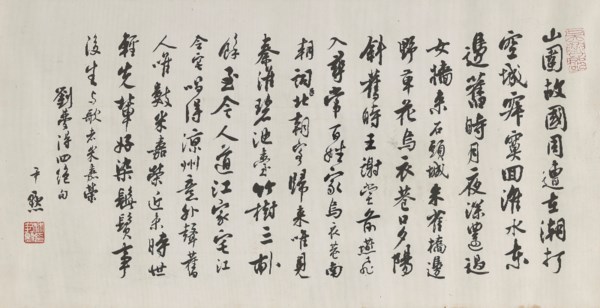 山圍故國周遭在潮打
空城寂寞回淮水東
邊舊時月夜深還過
女牆来石頭城朱雀橋邊
野草花烏衣巷口夕陽
斜舊時王謝堂前燕飛
入尋常百姓家烏衣巷南
朝詞臣北朝客歸来唯見
秦淮碧池臺竹樹三畝
餘至今人道江家宅江
令宅唱得涼州意外聲舊
人唯數米嘉榮近来時世
輕先輩好染髭鬚事
後生与歌者米嘉榮
劉夢得四絕句
尹默